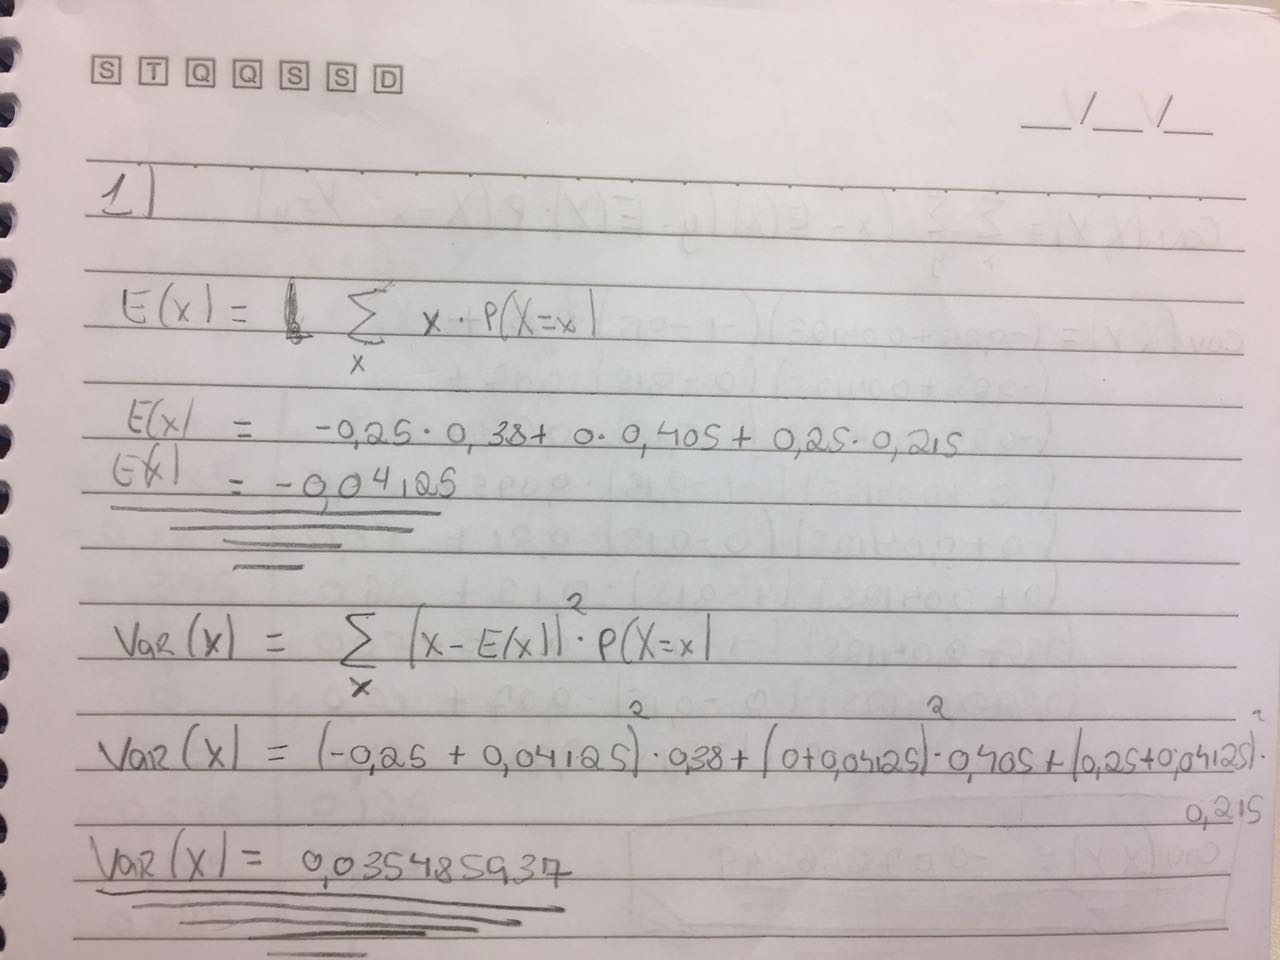 S T Q Q S S D
__/__/__
1)
E(x) = ∑ x · P(X=x)
x
E(x) = -0,25 · 0,38 + 0 · 0,405 + 0,25 · 0,215
E(x) = -0,04125
Var(x) = ∑ (x - E(x))² · P(X=x)
x
Var(x) = (-0,25 + 0,04125)² · 0,38 + (0+0,04125)² · 0,405 + (0,25+0,04125)² ·
0,215
Var(x) = 0,035485937